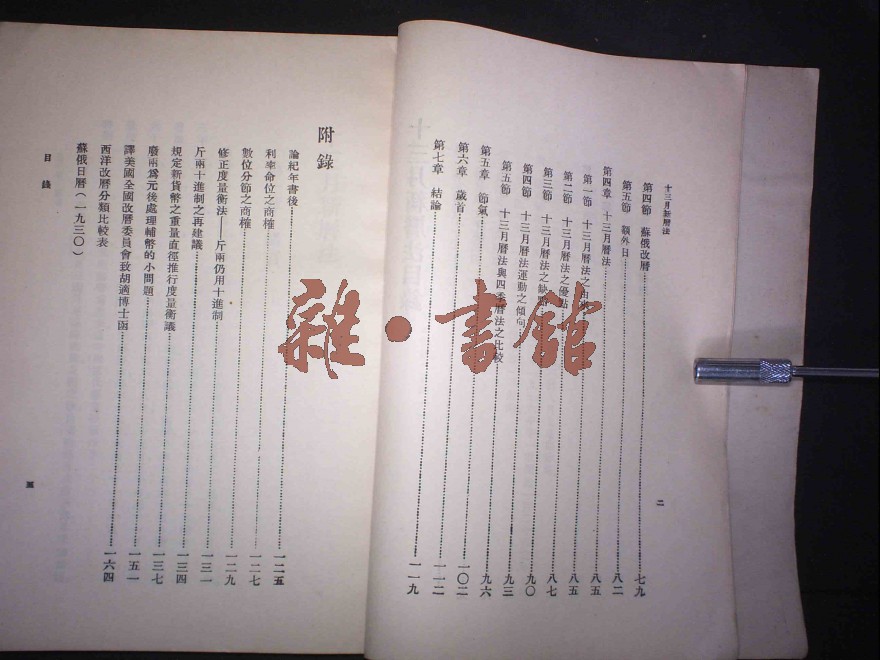 十三月新曆法
二
第四節 蘇俄改曆 七九
第五節 額外日 八二
第四章 十三月曆法 八五
第一節 十三月曆法之由 八五
第二節 十三月曆法之優點 八七
第三節 十三月曆法之缺點 九〇
第四節 十三月曆法運動之傾向 九三
第五節 十三月曆法與四季曆法之比較 九六
第五章 節氣 一〇二
第六章 歲首 一一二
第七章 結論 一一九
附錄
論紀年書後 一二五
利率命位之商榷 一二七
數位分節之商榷 一二九
修正度量衡法——斤兩仍用十進制 一三一
斤兩十進制之再建議 一三四
規定新貨幣之重量直徑推行度量衡議 一三七
廢兩為元後處理輔幣的小問題 一五一
譯美國全國改曆委員會致胡適博士函 一六四
西洋改曆分類比較表
蘇俄日曆(一九三〇)
目錄
三
雜·書館